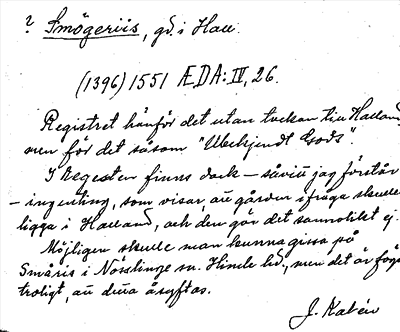 ? Smögeriis, gd. i Hall.
(1396) 1551 ÆDA: IV, 26.
Registret hänför det utan tvekan till Halland,
men för det såsom "Ubekjendt Gods".
I Regesten finns dock – såvitt jag förstår
– ingenting, som visar, att gården ifråga skulle
ligga i Halland, och den gör det sannolikt ej.
Möjligen skulle man kunna gissa på
Småris i Nösslinge sn. Himle hd., men det är föga
troligt, att detta åsyftas.
J. Kalén